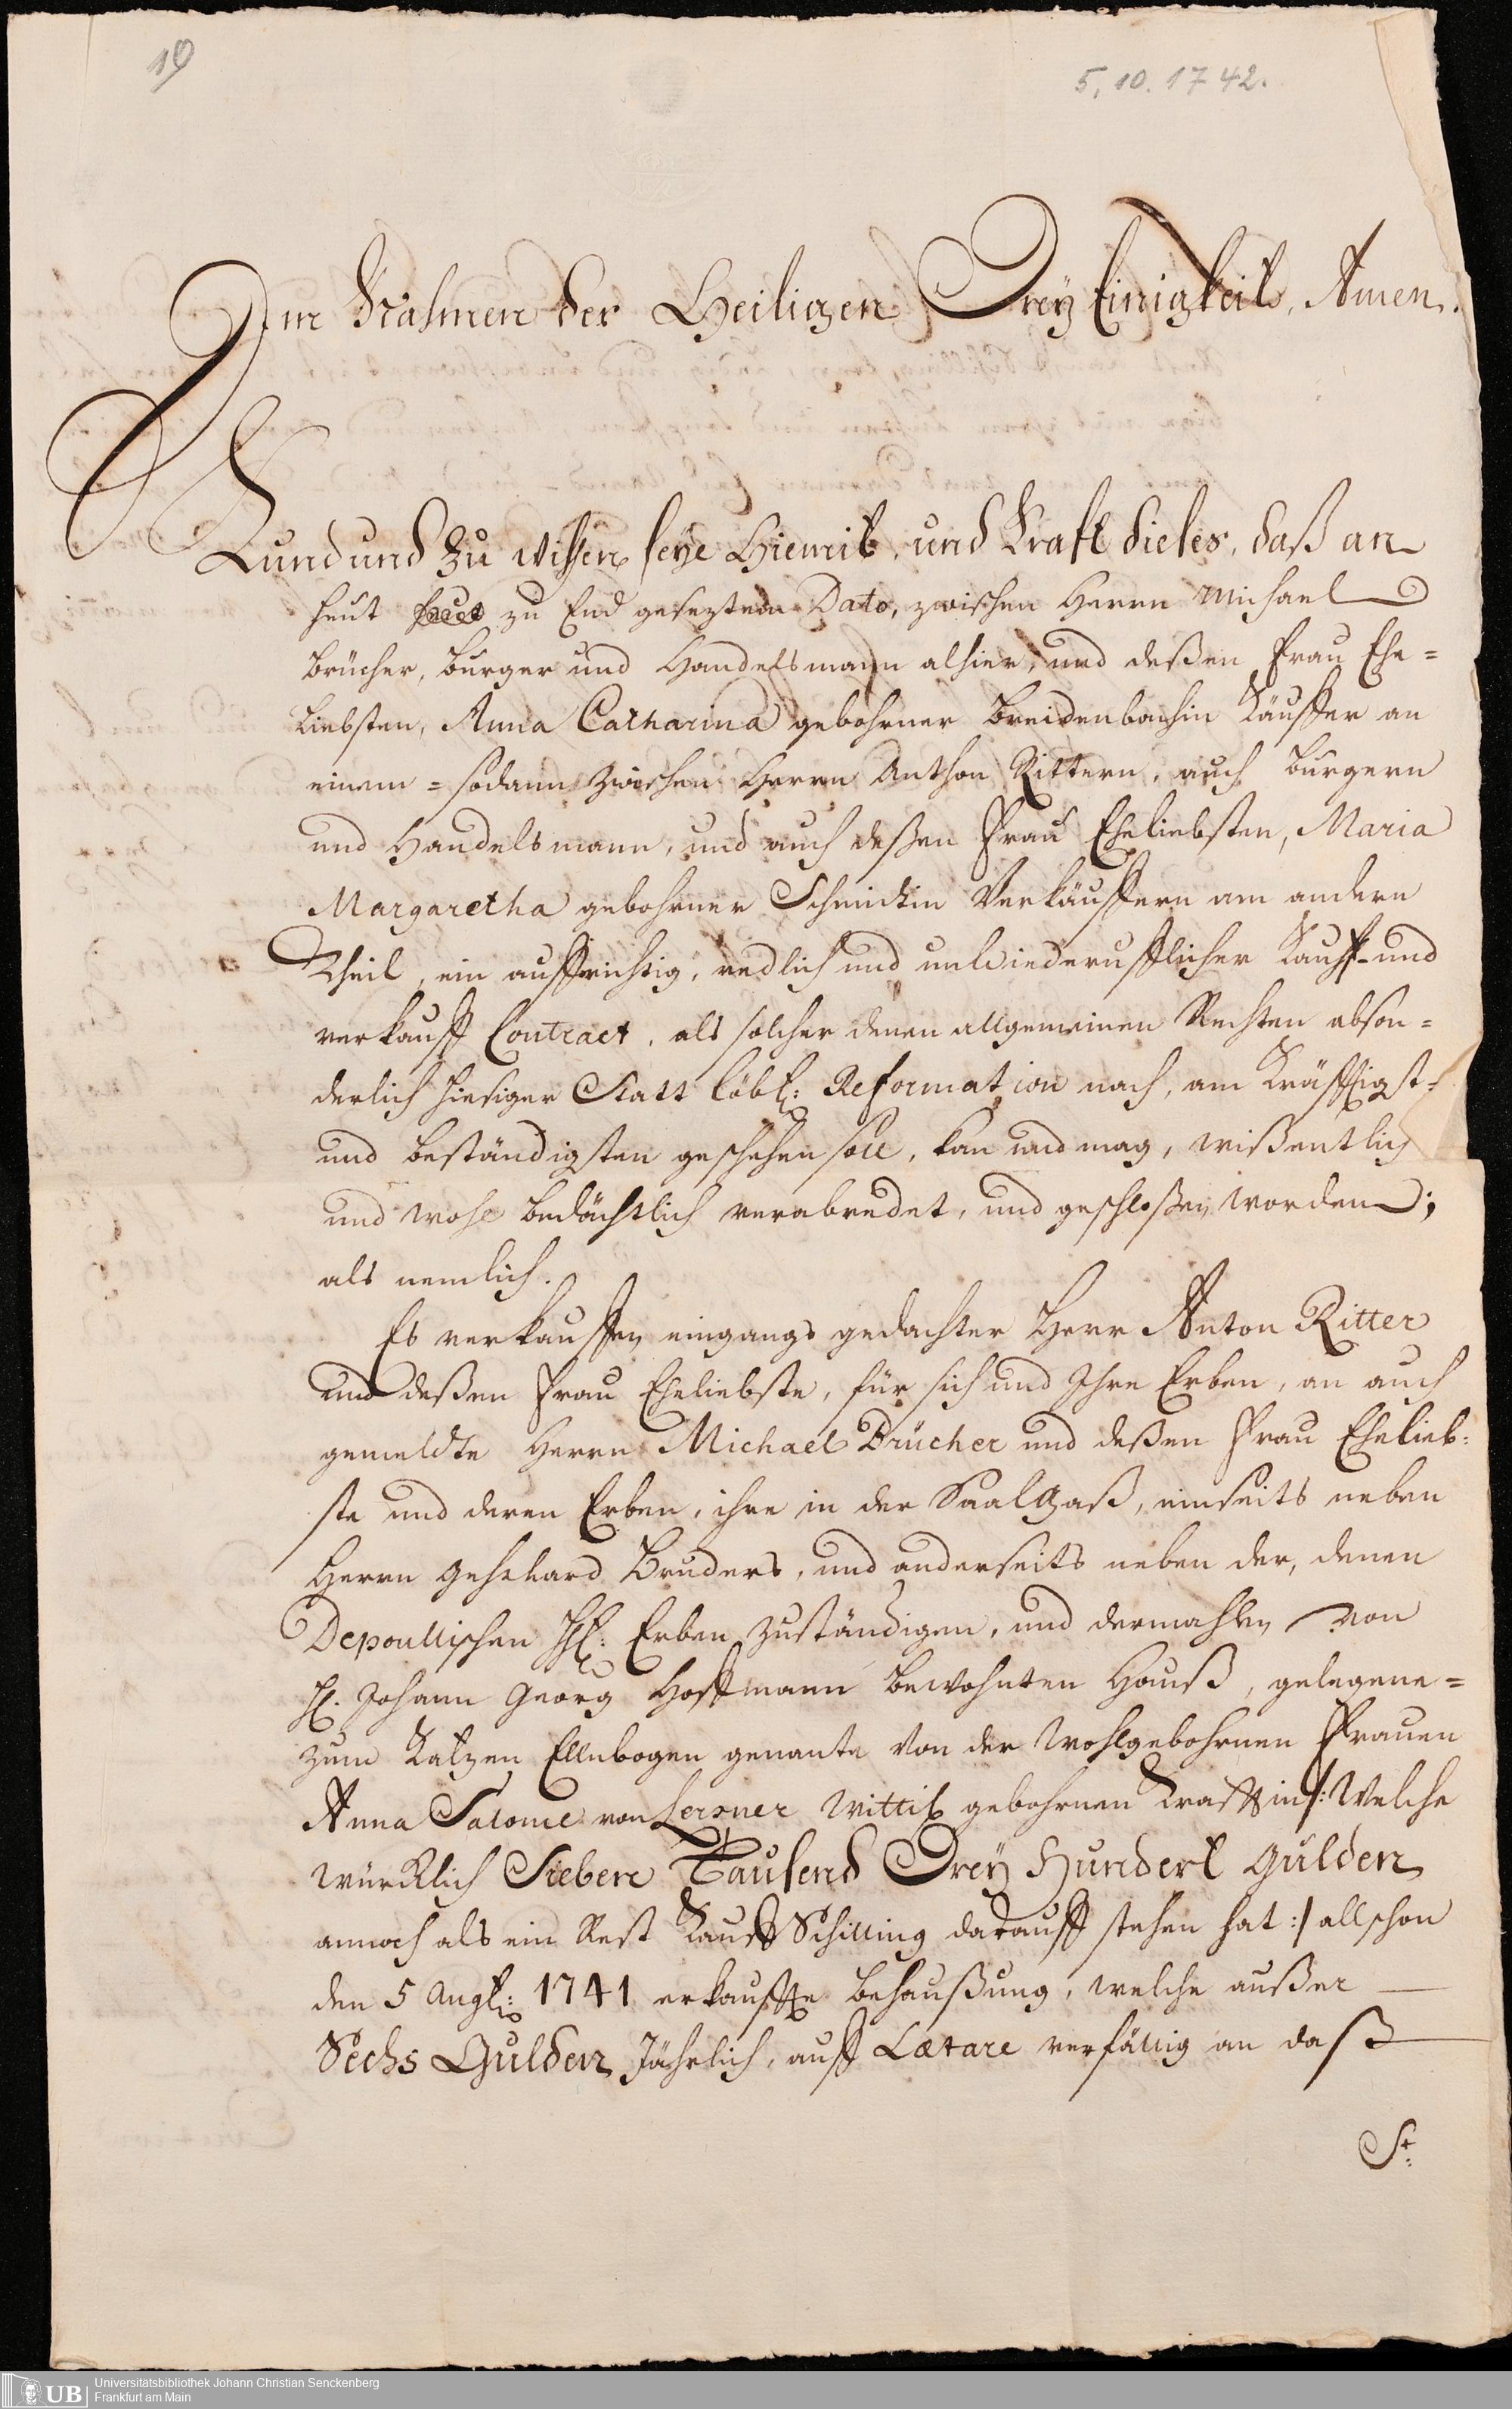 19
5. 10. 1742.
Im Nahmen der Heiligen Drey Einigkeit, Amen.
Kund und zu wissen seye Hiemit, und Kraft dieses, daß an
heut zu End gesezten Dato, zwischen Herrn Michael
Brücher, Burger und Handelsmann alhier, und deßen Frau Ehe=
Liebsten, Anna Catharina gebohrner Breidenbachin Käuffer an
einem = sodann zwischen Herrn Anthon Rittern, auch Burgern
und Handelsmann, und auch deßen Frau Eheliebsten, Maria
Margaretha gebohrner Schmidtin Verkäuffern am andern
Theil, ein auffrichtig, redlich und unwiederufflicher Kauff- und
verkauff Contract, als solcher denen allgemeinen Rechten abson=
derlich hiesiger Statt löbl: Reformation nach, am Kräfftigst=
und beständigsten geschehen soll, kan und mag, wißentlich
und wohl bedächtlich verabredet, und geschloßen worden;
als nemlich.
Es verkauffen eingangs gedachter Herr Anton Ritter
und deßen Frau Eheliebste, für sich und Ihre Erben, an auch
gemeldte Herrn Michael Brücher und deßen Frau Ehelieb=
ste und deren Erben, ihre in der Saalgaß, einseits neben
Herrn Gebhard Bruders, und anderseits neben der, denen
Depoullischen Erben zuständigen, und dermahlen von
H. Johann Georg Hoffmann bewohnten Hauß, gelegene=
zum Katzen Ellnbogen genante von der Wohlgebohrnen Frauen
Anna Salome von Lersner Wittib gebohrnen Krafftin /: Welche
würcklich Sieben Tausend Drey Hundert Gulden
annoch als ein Rest Kauff Schilling darauff stehen hat :/ allschon
den 5 Augt: 1741 erkauffte Behaußung, welche außer
Sechs Gulden Jährlich, auff Lætare verfällig an daß
St:
UB
Universitätsbibliothek Johann Christian Senckenberg
Frankfurt am Main